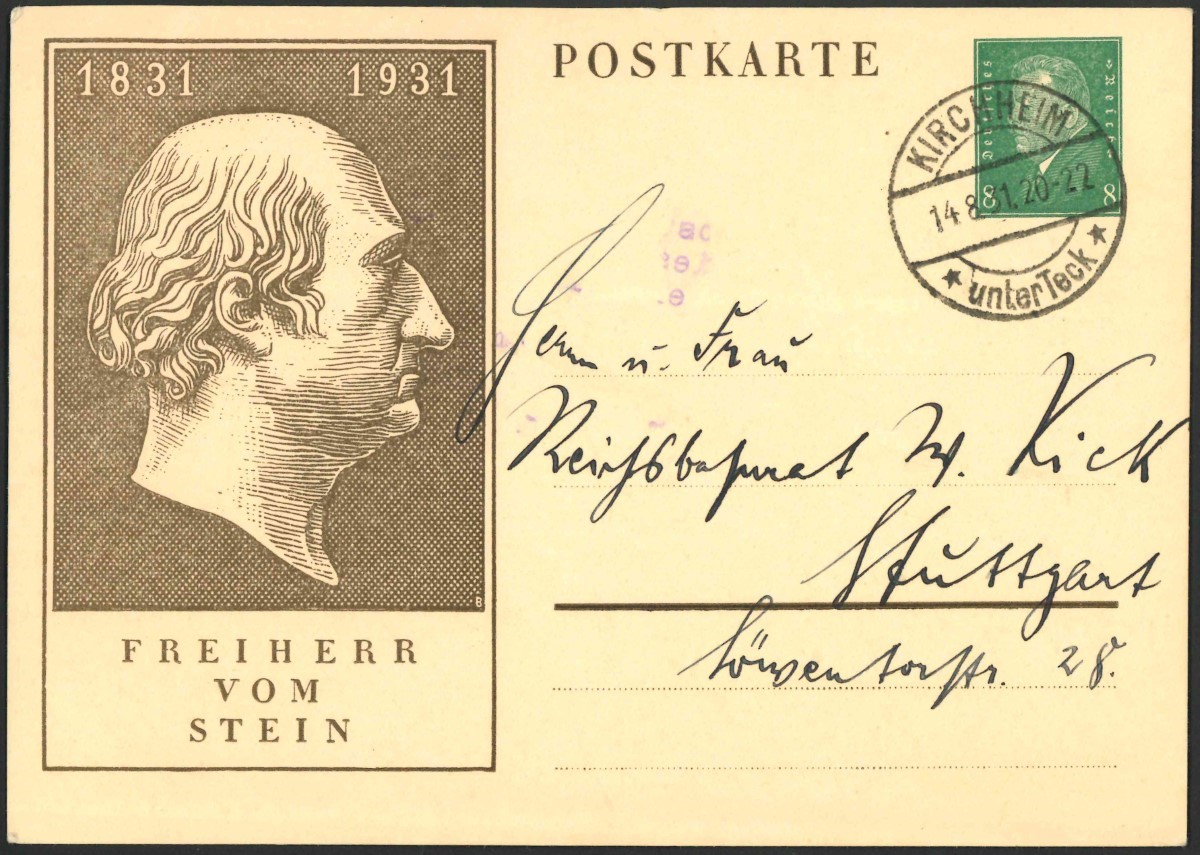 1831 1931
FREIHERR
VOM
STEIN
B
POSTKARTE
Deutsches Reich
8 8
KIRCHHEIM
14.8.31.20-22
★ unter Teck ★
Herrn u. Frau
Reichsbahnrat W. Kick
Stuttgart
Löwentorstr. 28.